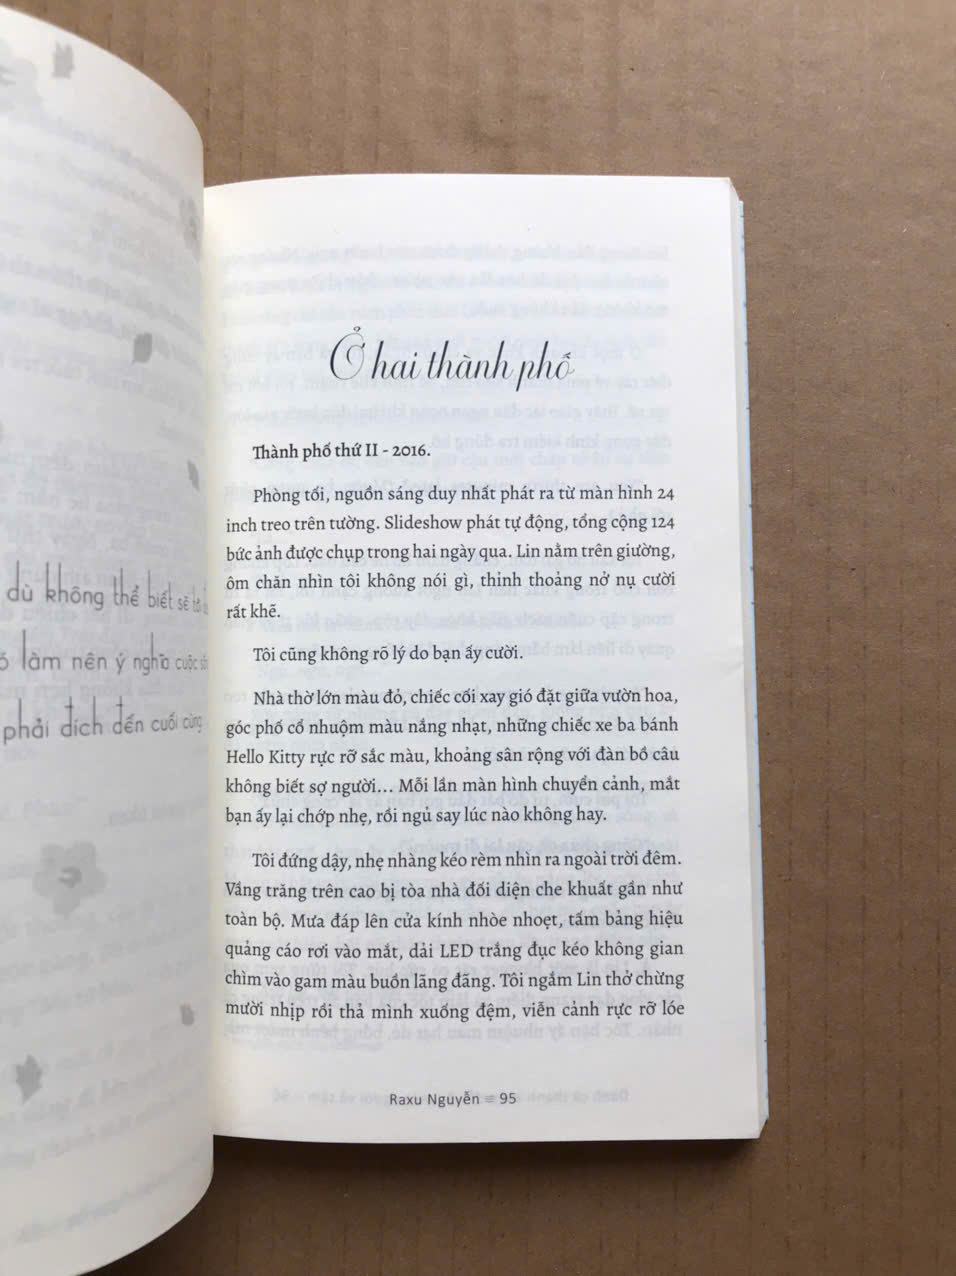 dù không thể biết sẽ
làm nên ý nghĩa cuộc
phải đích đến cuối cùng
Ở hai thành phố
Thành phố thứ II - 2016.
Phòng tối, nguồn sáng duy nhất phát ra từ màn hình 24
inch treo trên tường. Slideshow phát tự động, tổng cộng 124
bức ảnh được chụp trong hai ngày qua. Lin nằm trên giường,
ôm chăn nhìn tôi không nói gì, thỉnh thoảng nở nụ cười
rất khẽ.
Tôi cũng không rõ lý do bạn ấy cười.
Nhà thờ lớn màu đỏ, chiếc cối xay gió đặt giữa vườn hoa,
góc phố cổ nhuộm màu nắng nhạt, những chiếc xe ba bánh
Hello Kitty rực rỡ sắc màu, khoảng sân rộng với đàn bồ câu
không biết sợ người... Mỗi lần màn hình chuyển cảnh, mắt
bạn ấy lại chớp nhẹ, rồi ngủ say lúc nào không hay.
Tôi đứng dậy, nhẹ nhàng kéo rèm nhìn ra ngoài trời đêm.
Vầng trăng trên cao bị tòa nhà đối diện che khuất gần như
toàn bộ. Mưa đáp lên cửa kính nhòe nhoẹt, tấm bảng hiệu
quảng cáo rơi vào mắt, dải LED trắng đục kéo không gian
chìm vào gam màu buồn lãng đãng. Tôi ngắm Lin thở chừng
mười nhịp rồi thả mình xuống đệm, viễn cảnh rực rỡ lóe
Raxu Nguyễn ≡ 95